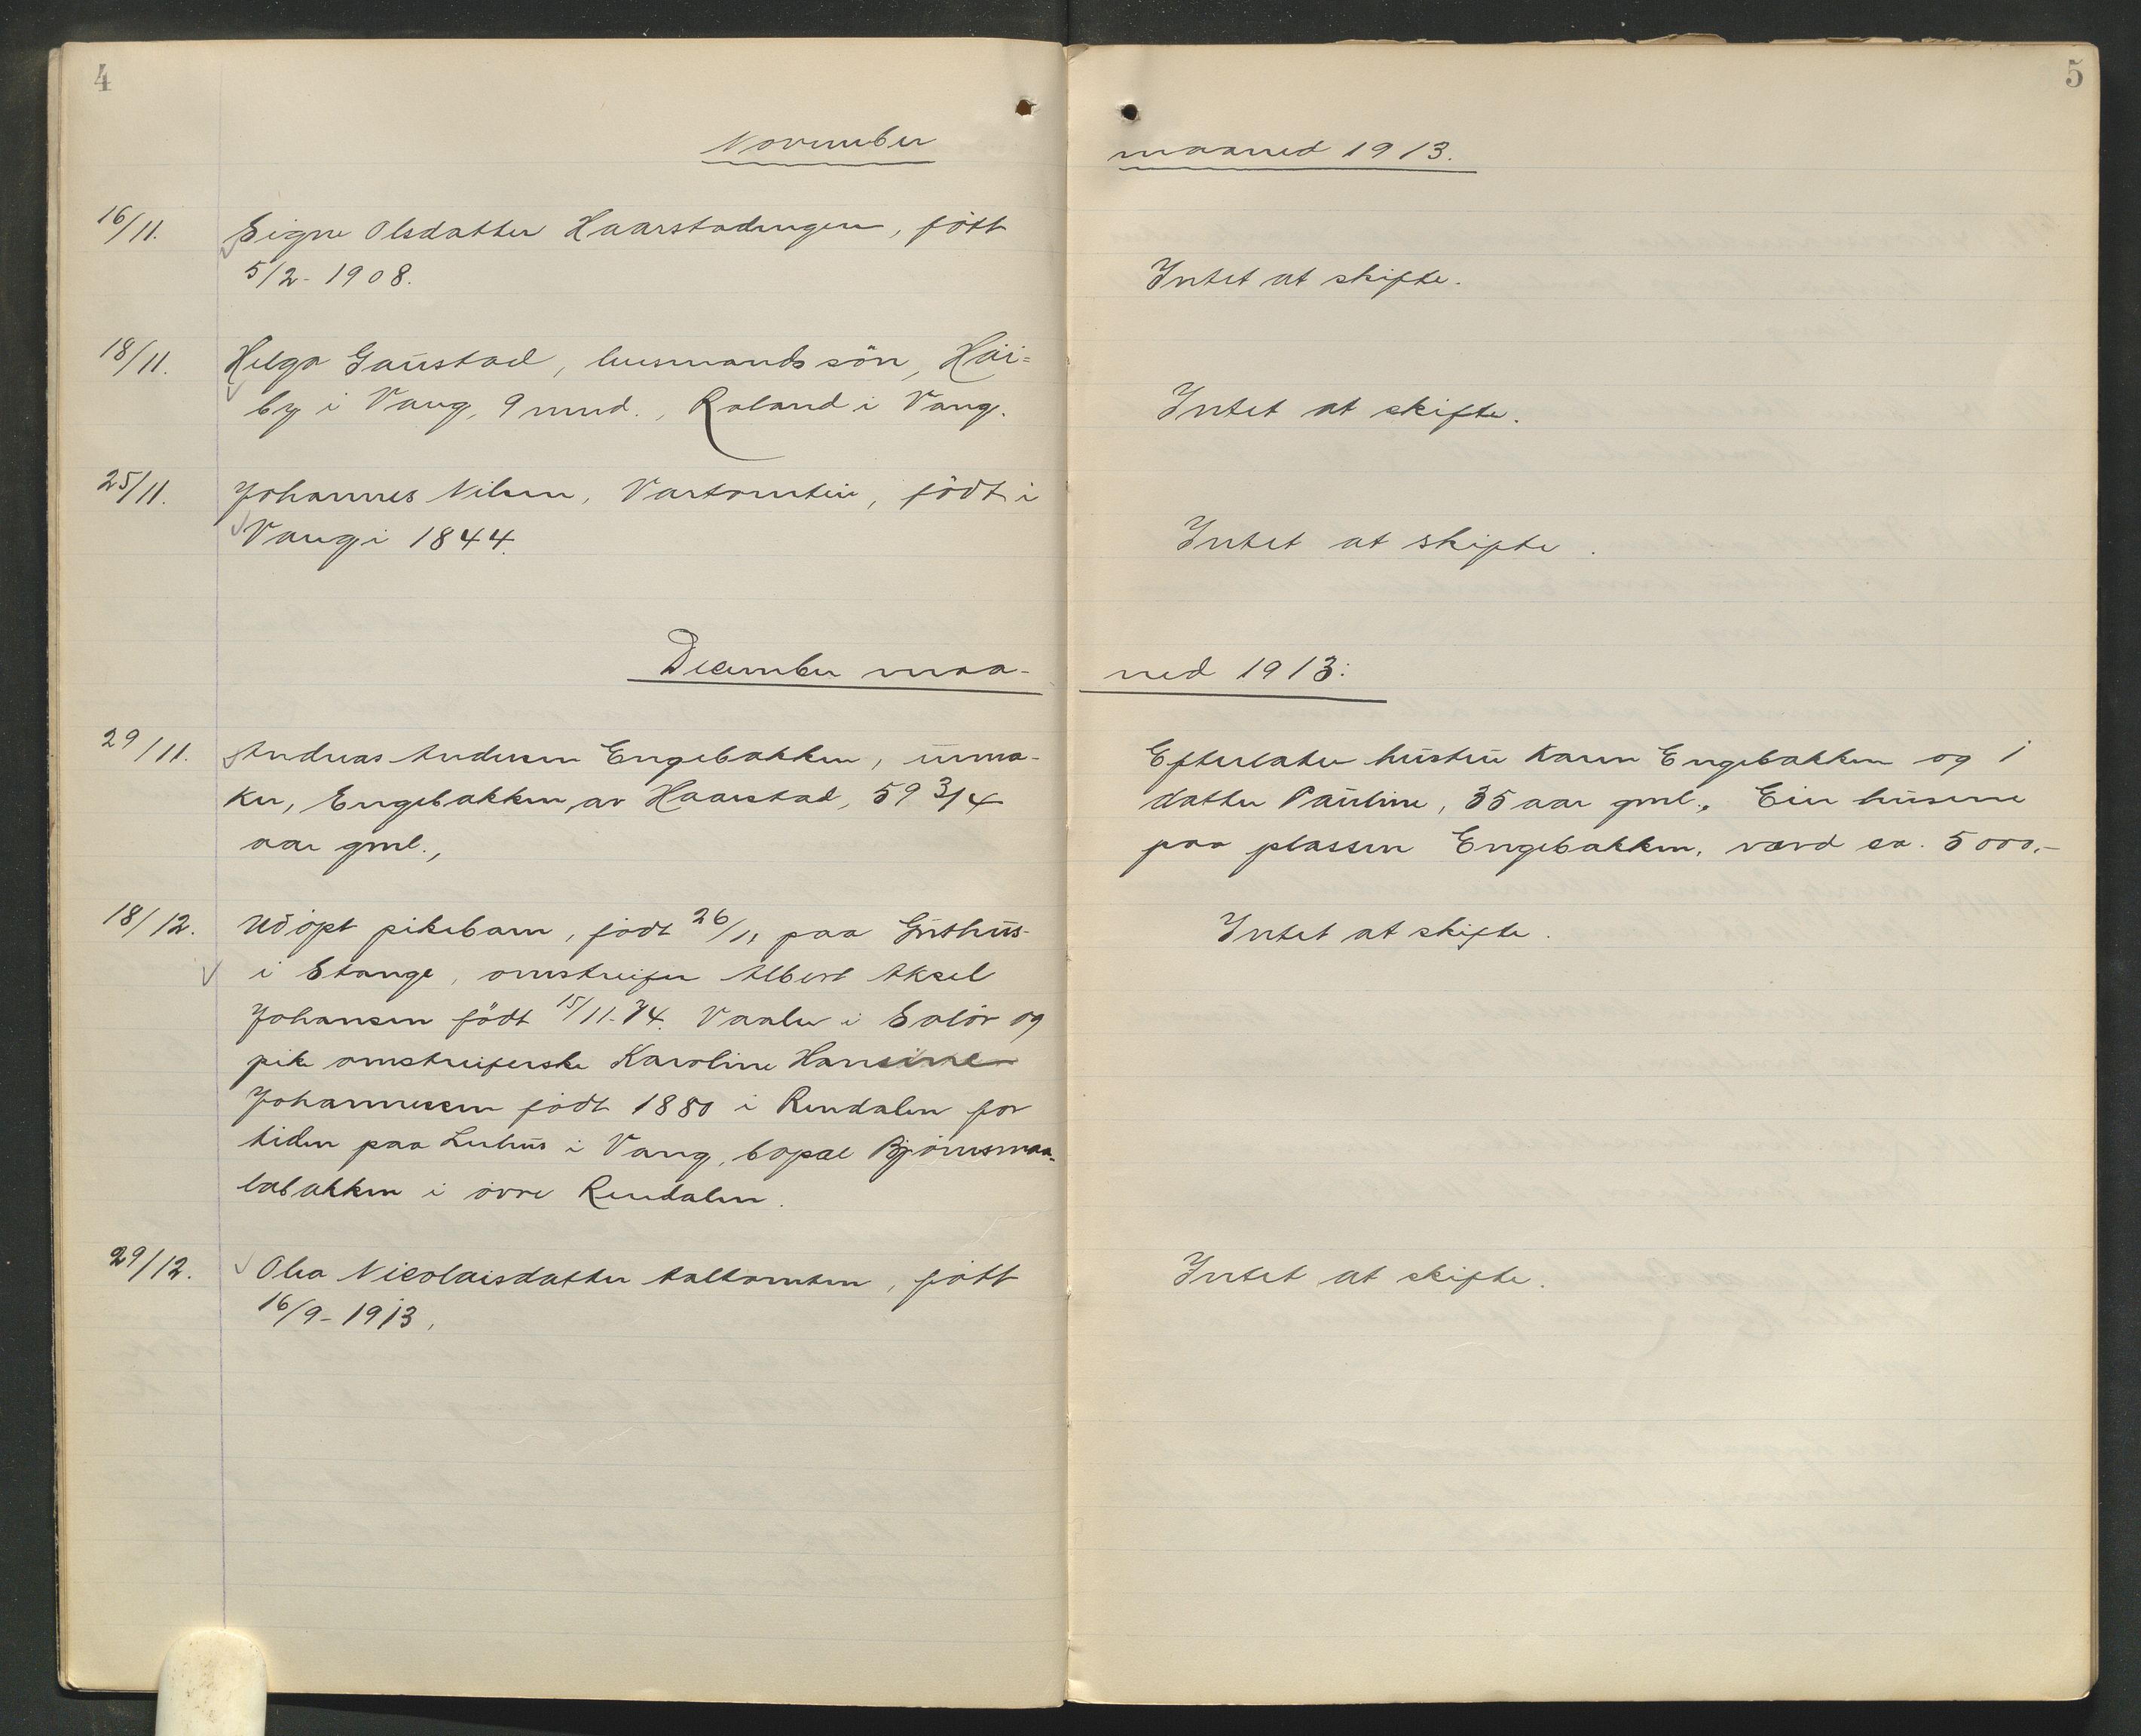 4
5
November
maaned 1913.
16/11. Signe Olsdatter Haarstadengen, fött
5/2- 1908.
Intet at skifte.
18/11. Helga Gaustad, husmandssön, Häi=
by i Vang, 9 mnd., Roland i Vang.
Intet at skifte.
25/11. Johannes Nilsen, Vartomten, född i
Vang i 1844.
Intet at skifte.
December maa-
ned 1913.
29/11. Andreas Andersen Engebakken, urma-
ker, Engebakken av Haarstad, 59 3/4
aar gml.,
Efterlater hustru Karen Engebakken og 1
datter Pauline, 35 aar gml., Eier husene
paa plassen Engebakken, værd ca. 5000,-
18/12. Udöpt pikebarn, född 26/11 paa
i Stange, omstreifer Albert Aksel
Johansen född 15/11-74. Vaaler i Solör og
pike omstreiferske Karoline Hansine
Johannessen född 1880 i Rendalen for
tiden paa i Vang, bopæl Björnsmoa-
labakken i övre Rendalen.
Intet at skifte.
29/12. Olea Nicolaisdatter, fött
16/9- 1913.
Intet at skifte.